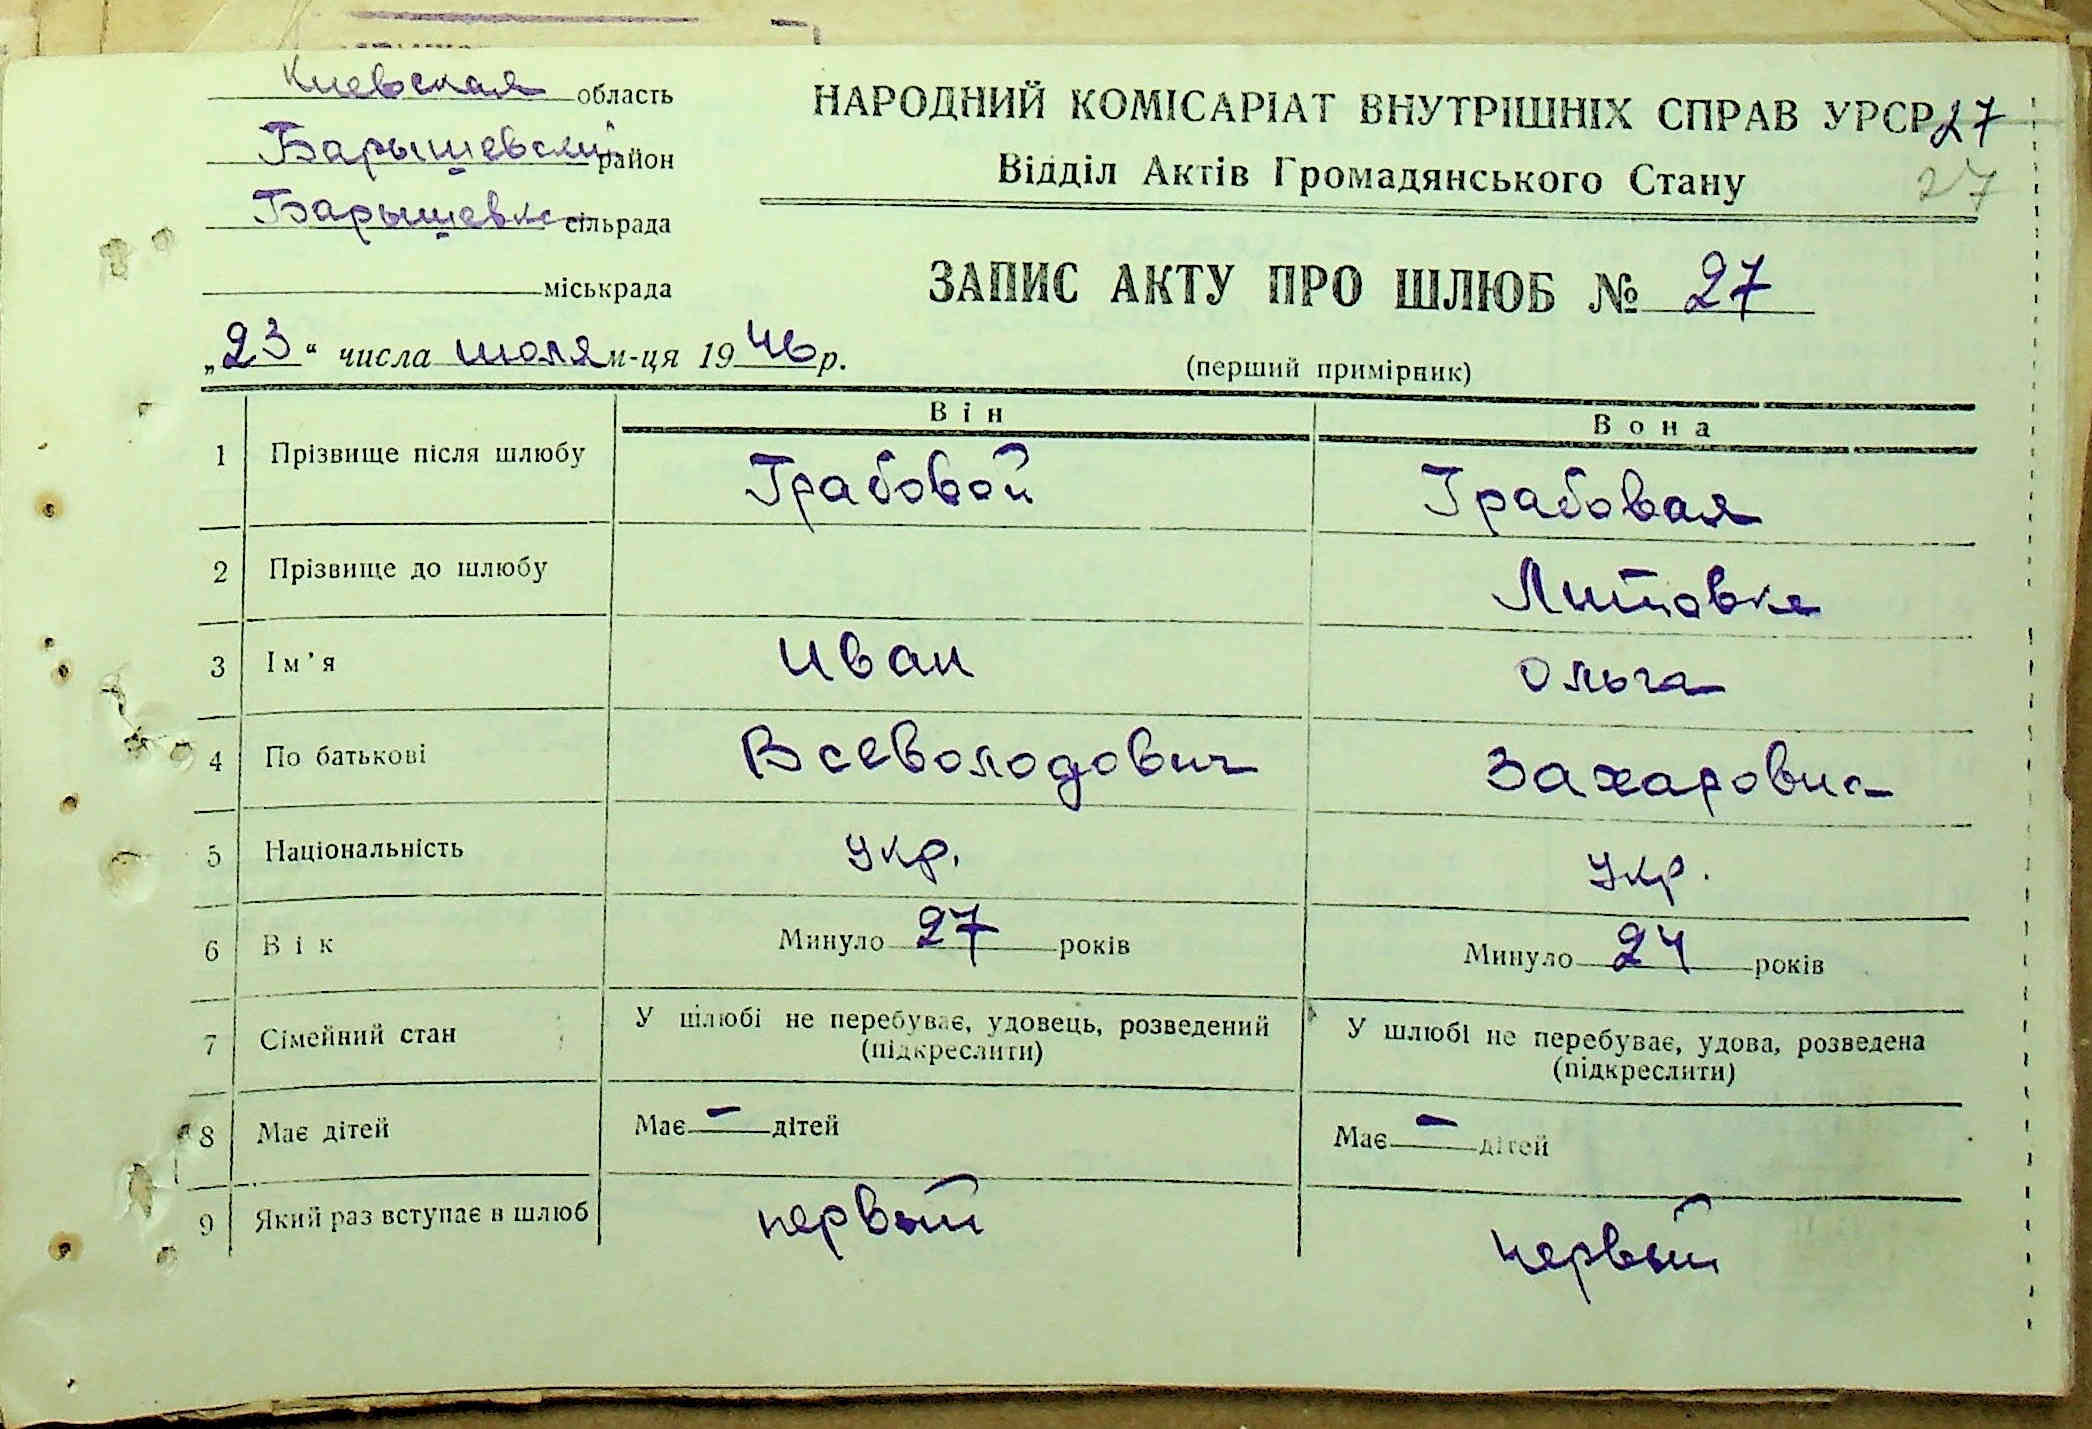 Киевская область
Барышевский район
Барышевка сільрада
міськрада
„23“ числа июля м-ця 1946 р.
НАРОДНИЙ КОМІСАРІАТ ВНУТРІШНІХ СПРАВ УРСР 27
Відділ Актів Громадянського Стану 27
ЗАПИС АКТУ ПРО ШЛЮБ № 27
(перший примірник)
Він Вона
1 Прізвище після шлюбу Грабовой Грабовая
2 Прізвище до шлюбу Литовка
3 Ім’я Иван Ольга
4 По батькові Всеволодович Захаровна
5 Національність укр. укр.
6 Вік Минуло 27 років Минуло 24 років
7 Сімейний стан У шлюбі не перебуває, удовець, розведений У шлюбі не перебуває, удова, розведена
(підкреслити) (підкреслити)
8 Має дітей Має — дітей Має — дітей
9 Який раз вступає в шлюб первый первый